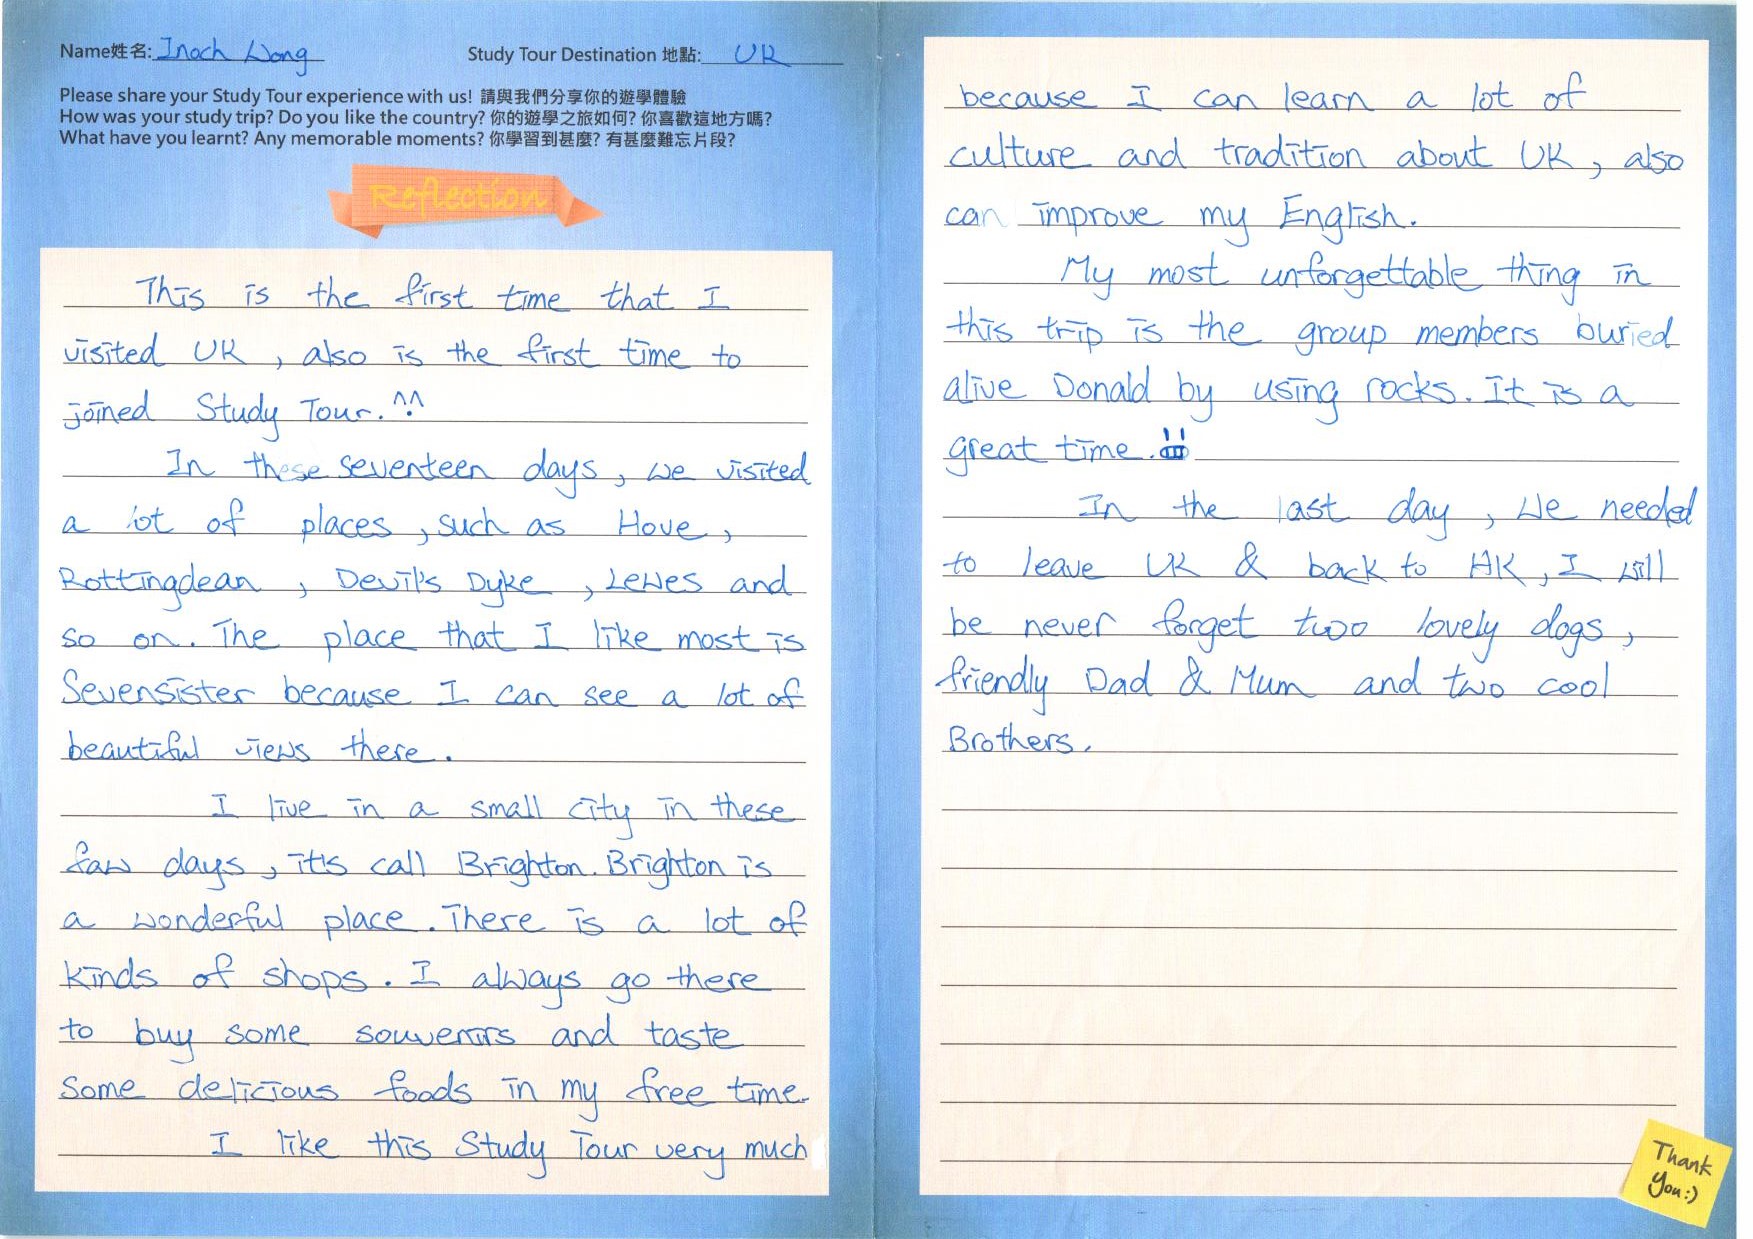 Name姓名: Inoch Wong
Study Tour Destination 地點: UK
Please share your Study Tour experience with us! 請與我們分享你的遊學體驗
How was your study trip? Do you like the country? 你的遊學之旅如何? 你喜歡這地方嗎?
What have you learnt? Any memorable moments? 你學習到甚麼? 有甚麼難忘片段?
Reflection
This is the first time that I
visited UK, also is the first time to
joined Study Tour.^^
In these seventeen days, we visited
a lot of places, such as Hove,
Rottingdean, Devil's Dyke, Lewes and
so on. The place that I like most is
Sevensister because I can see a lot of
beautiful views there.
I live in a small city in these
faw days, it's call Brighton. Brighton is
a wonderful place. There is a lot of
kinds of shops. I always go there
to buy some souvenirs and taste
some delicious foods in my free time.
I like this Study Tour very much
because I can learn a lot of
culture and tradition about UK, also
can improve my English.
My most unforgettable thing in
this trip is the group members buried
alive Donald by using rocks. It is a
great time.
In the last day, we needed
to leave UK & back to HK, I will
be never forget two lovely dogs,
friendly Dad & Mum and two cool
Brothers.
Thank
You:)